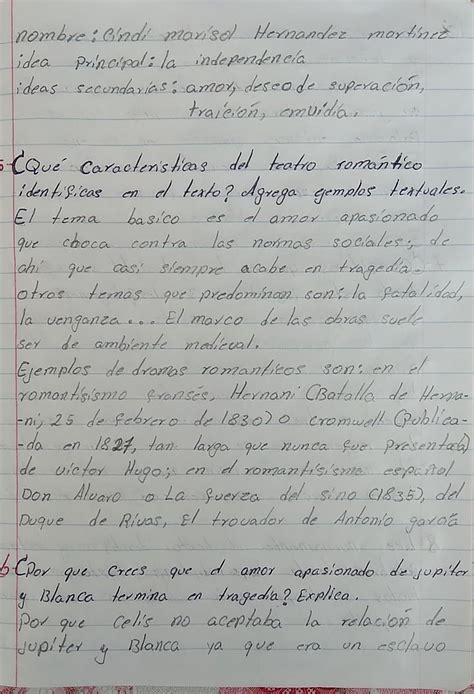 nombre: Cindi marisol Hernandez martinez
idea Principal: la independencia
ideas secundarias: amor, deseo de superación,
traición, emvidia.
5- ¿Qué Caracteristicas del teatro romántico
identificas en el texto? Agrega ejemplos textuales.
El tema basico es el amor apasionado
que choca contra las normas sociales; de
ahi que casi siempre acabe en tragedia.
otros temas que predominan son: la fatalidad,
la venganza... El marco de las obras suele
ser de ambiente medieval.
Ejemplos de dramas romanticos son: en el
romantisismo fransés, Hernani (Batalla de Herna-
-ni, 25 de febrero de 1830) o cromwell (Publica-
-da en 1827, tan larga que nunca fue Presentada)
de victor Hugo; en el romantisismo español
Don Alvaro o La fuerza del sino (1835), del
Duque de Rivas, El trovador de Antonio garcía
6 ¿Por que Crees que el amor apasionado de jupiter
y Blanca termina en tragedia? Explica.
Por que Celis no aceptaba la relación de
jupiter y Blanca ya que era un esclavo